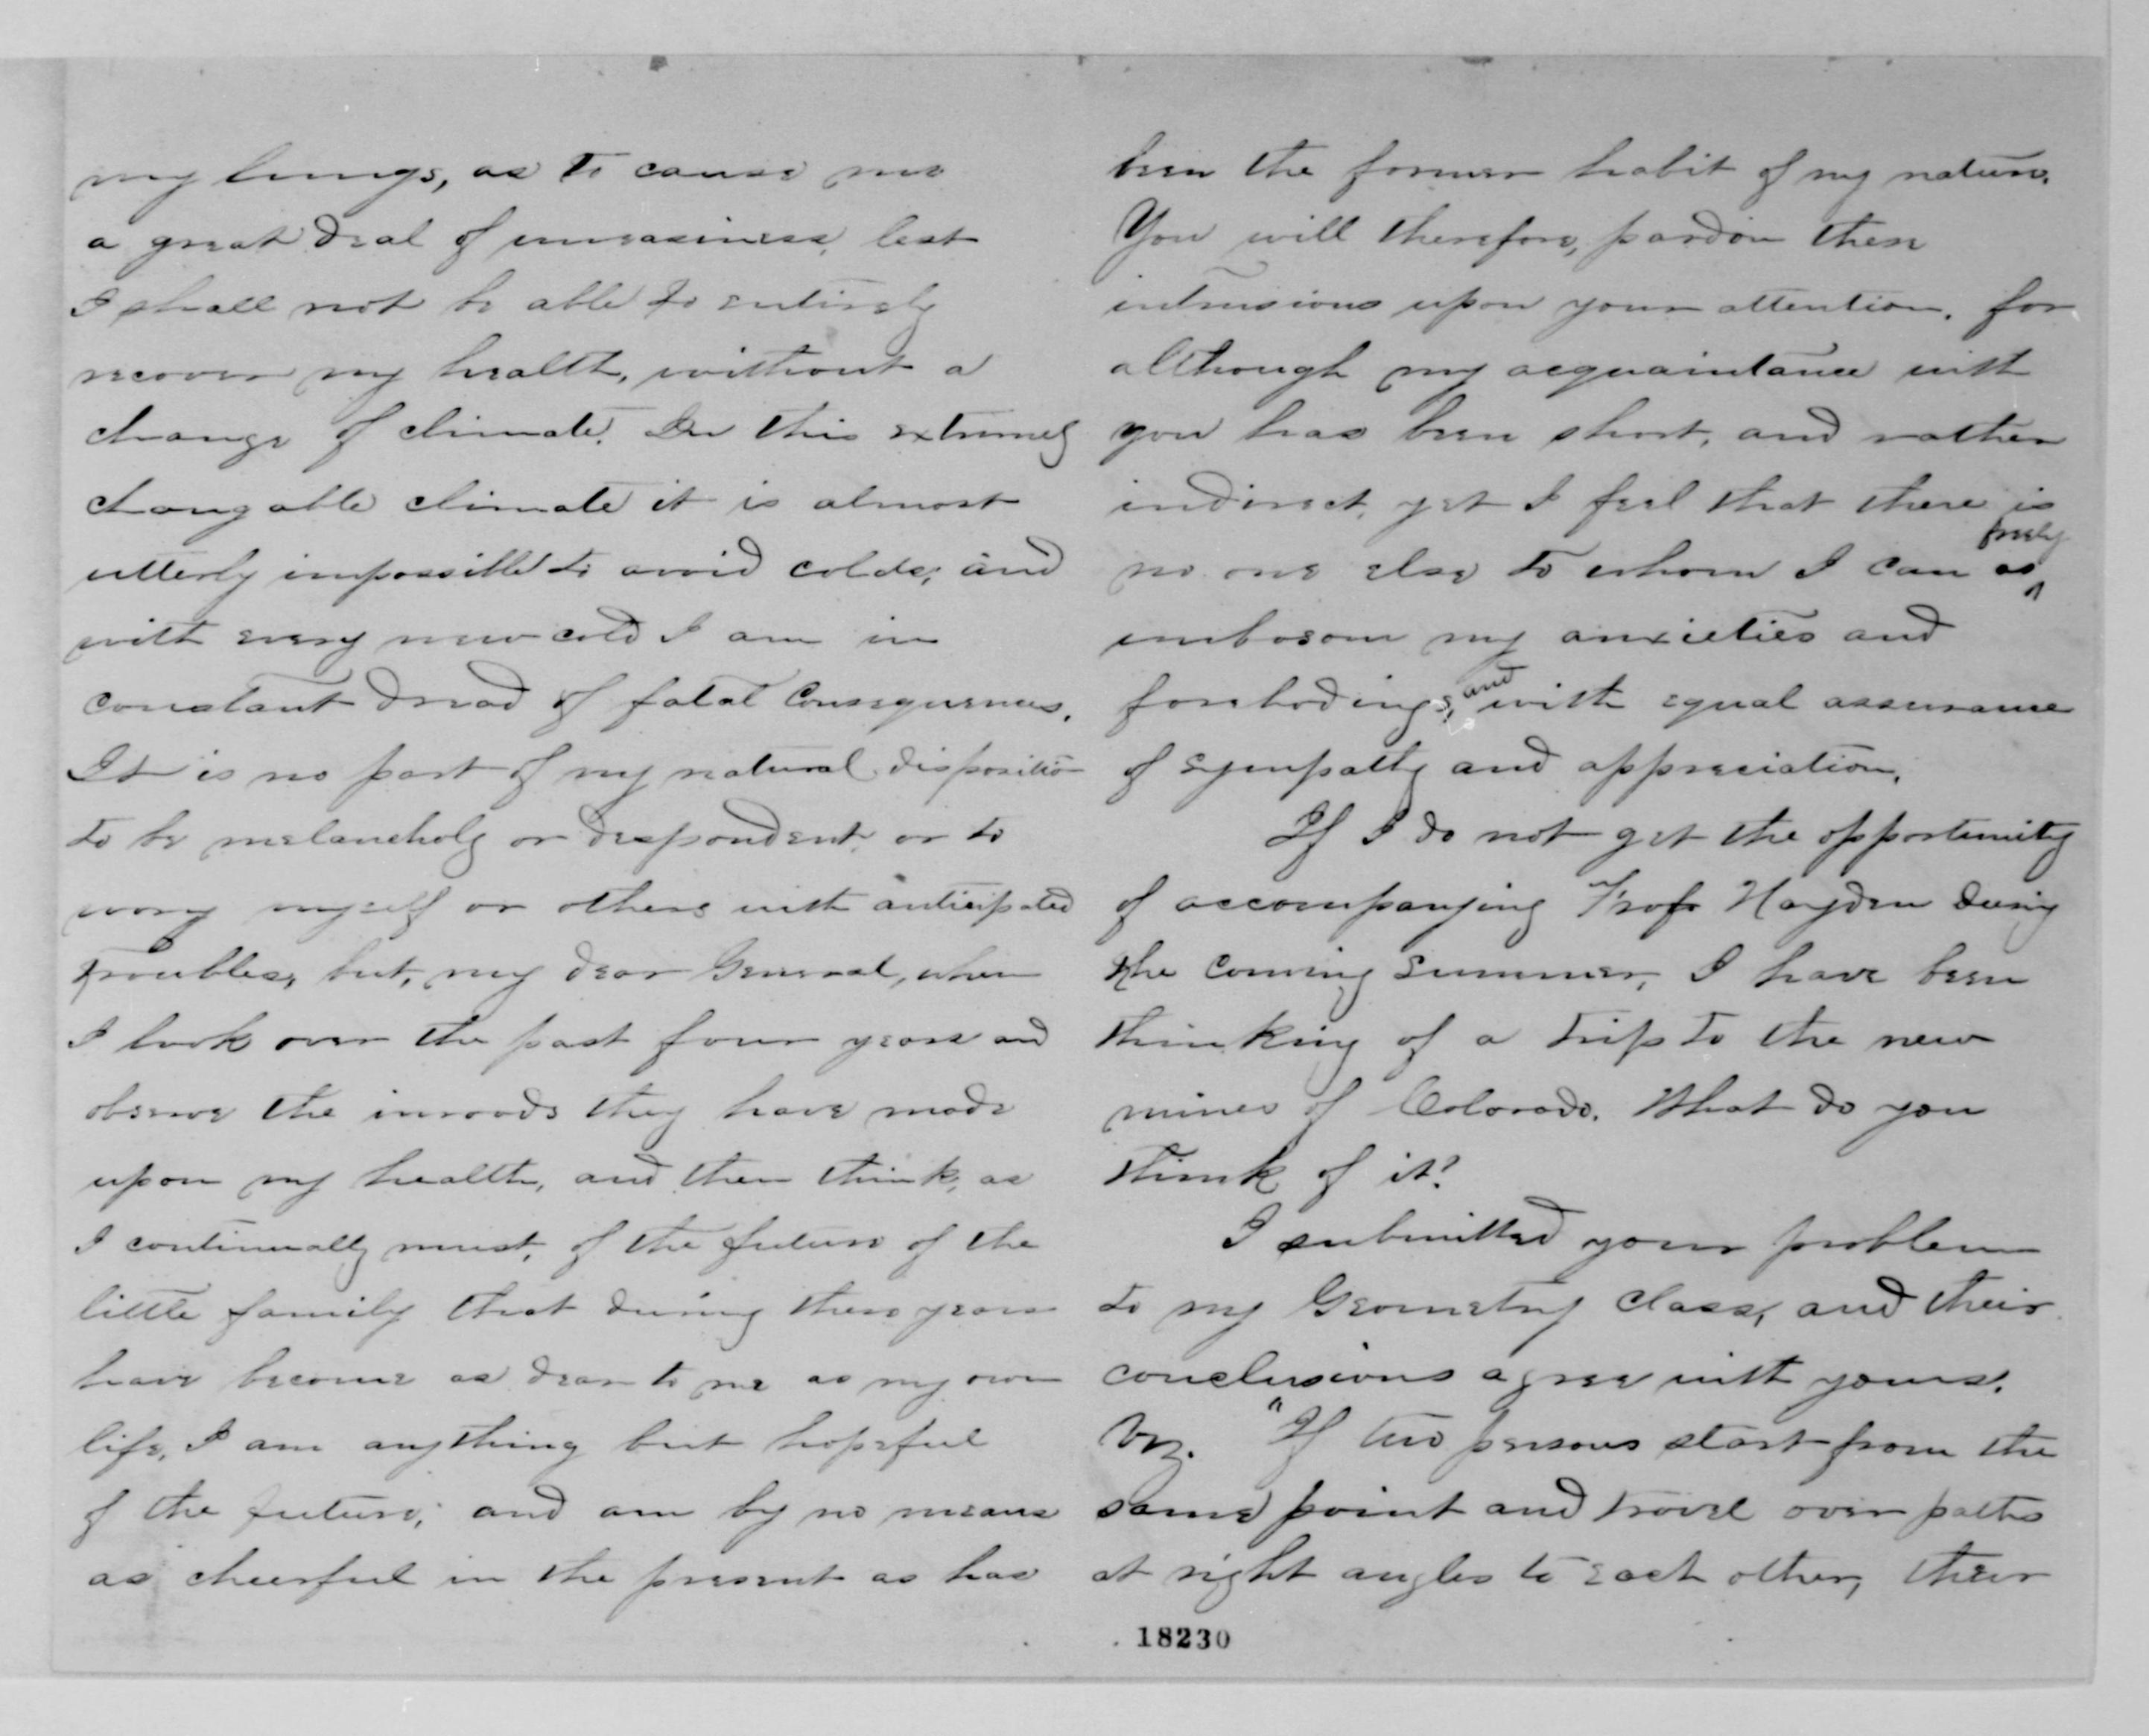 my lungs, as to cause me
a great deal of uneasiness, lest
I shall not be able to entirely
recover my health, without a
change of climate. In this extremely
changable climate it is almost
utterly impossible to avoid colds; and
with every new cold I am in
constant dread of fatal consequences.
It is no part of my natural disposition
to be melancholy or despondent, or to
worry myself or others with anticipated
troubles, but, my dear General, when
I look over the past four years and
observe the inroads they have made
upon my health, and then think, as
I continually must, of the future of the
little family that during these years
have become as dear to me as my own
life, I am anything but hopeful
of the future; and am by no means
as cheerful in the present as has
been the former habit of my nature.
You will therefore, pardon these
intrusions upon your attention, for
although my acquaintance with
you has been short, and rather
indirect, yet I feel that there is
no one else to whom I can as freely
unbosom my anxieties and
forebodings, and with equal assurance
of sympathy and appreciation.
If I do not get the opportunity
of accompanying Prof. Hayden during
the coming summer, I have been
thinking of a trip to the new
mines of Colorado. What do you
think of it?
I submitted your problem
to my Geometry class, and their
conclusions agree with yours.
Viz. "If two persons start from the
same point and travel over paths
at right angles to each other, their
18230